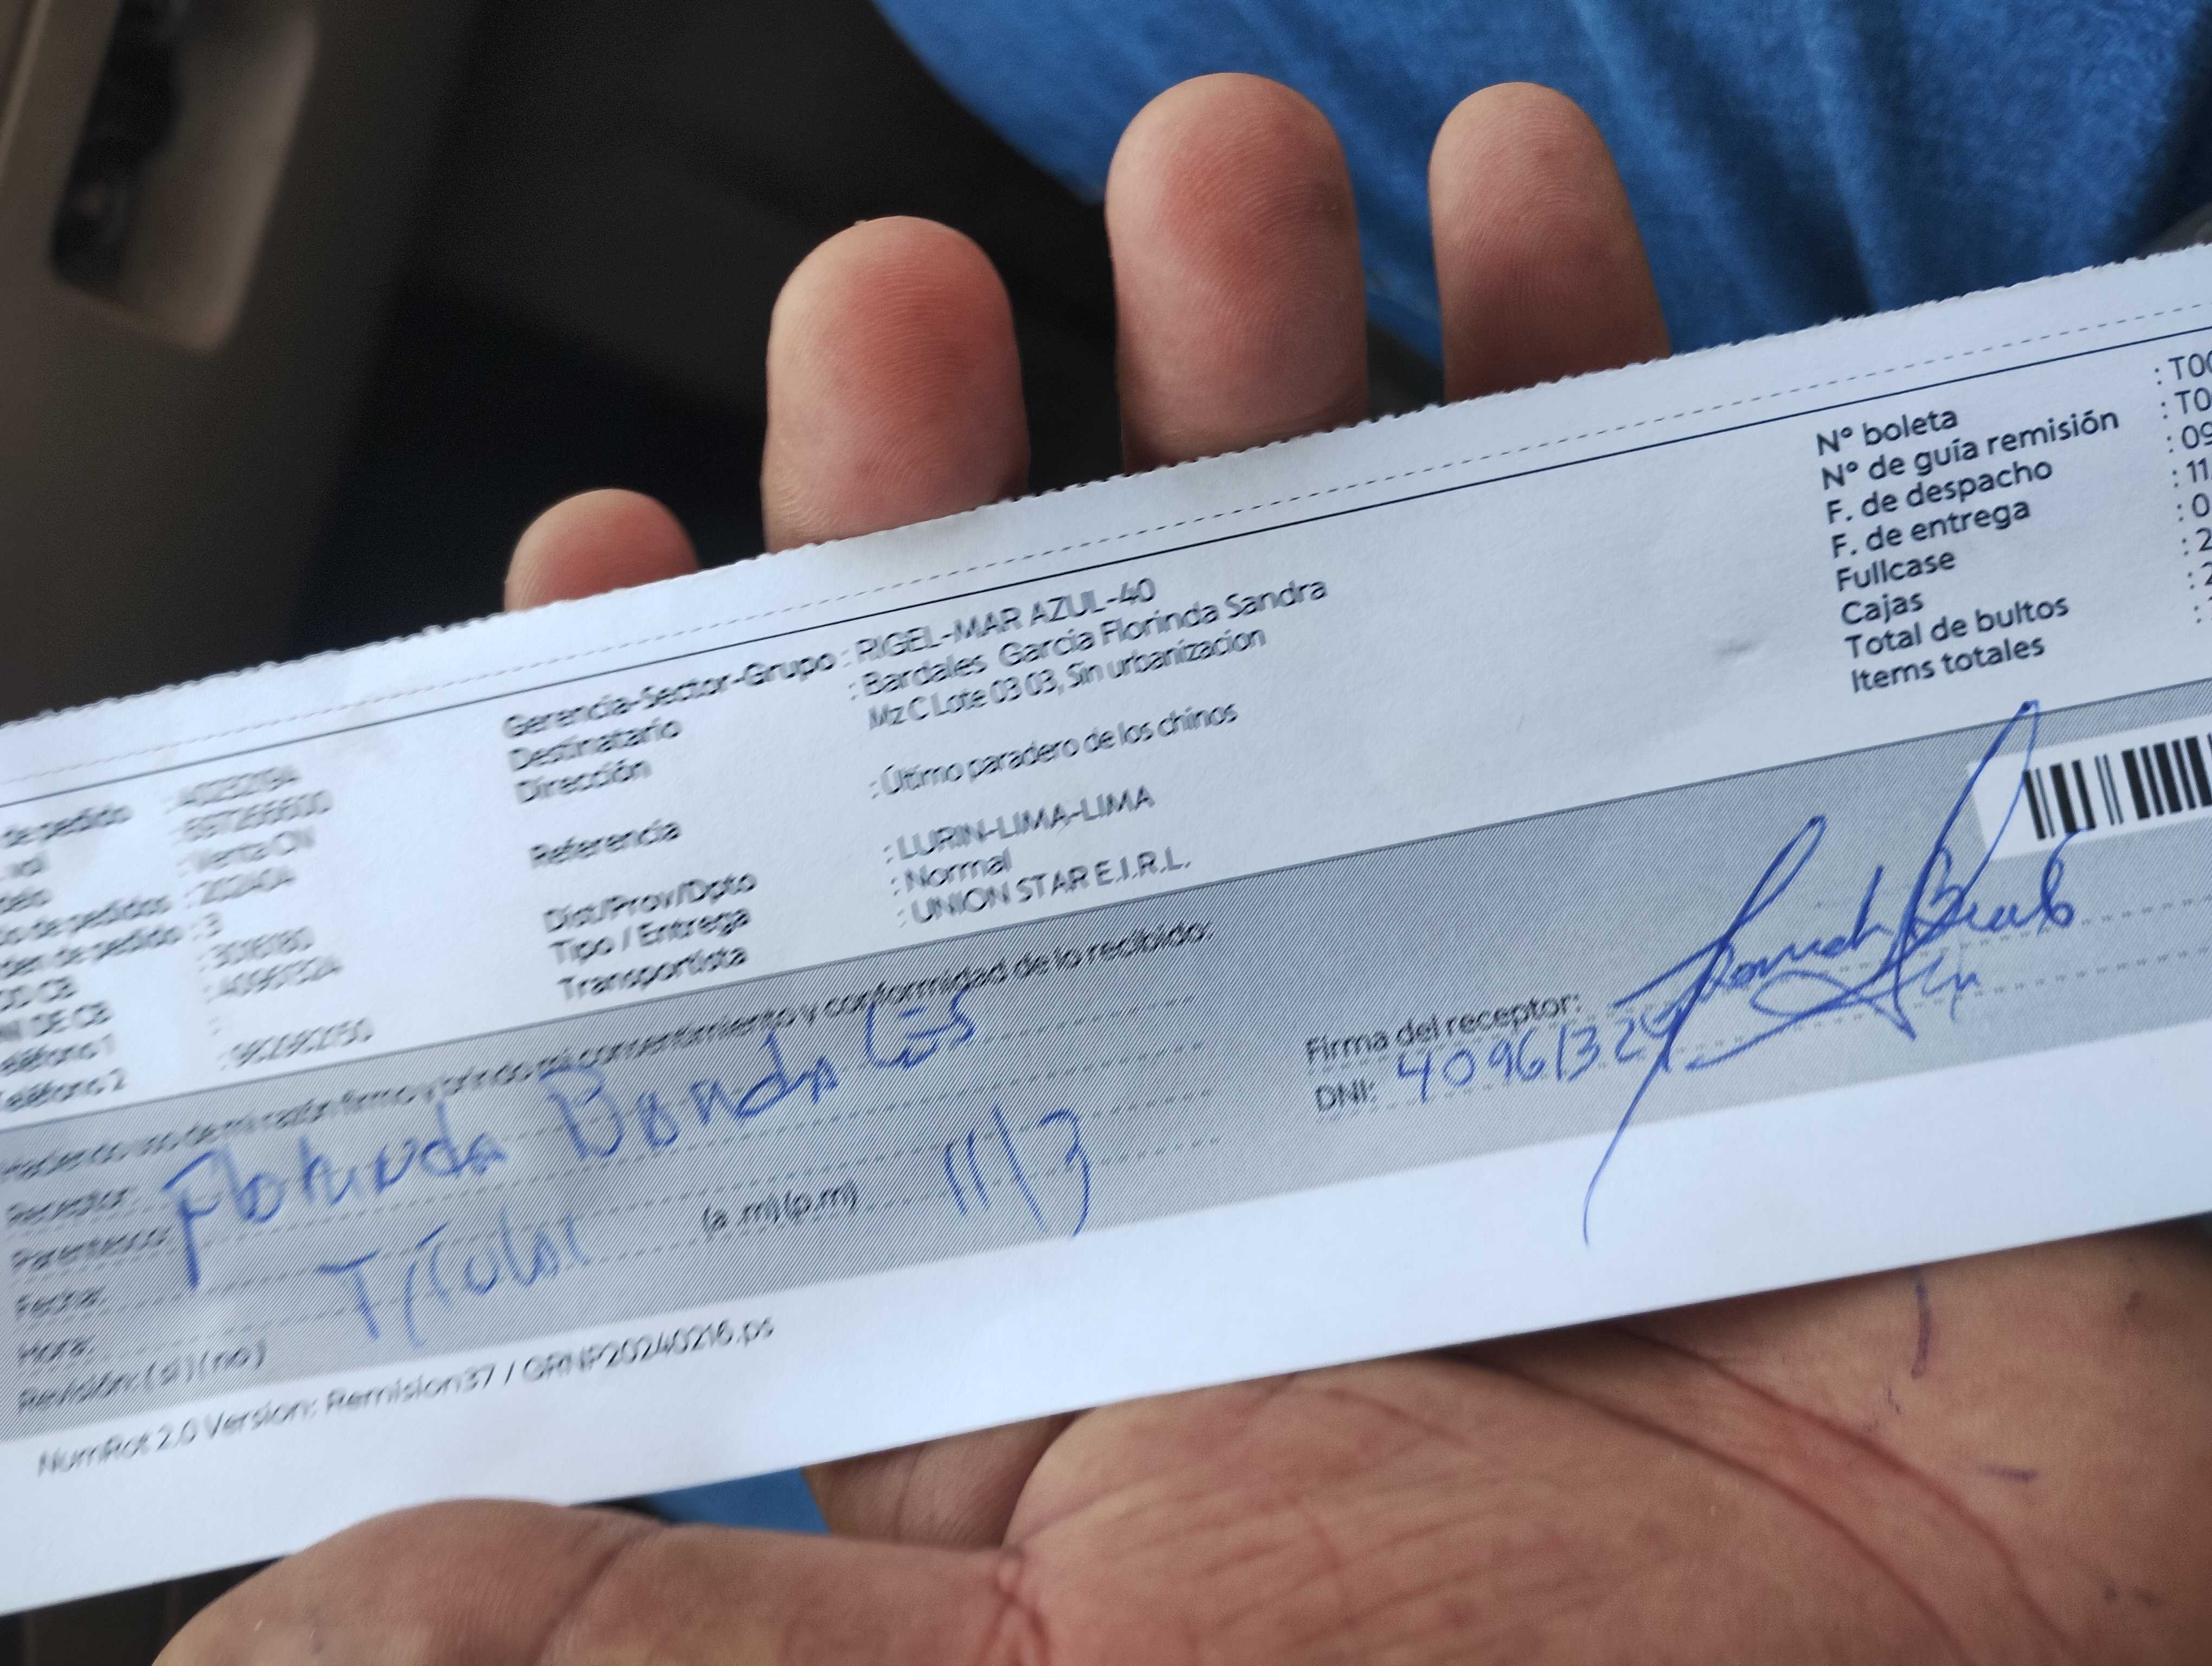 de pedido : 40232194
Venta CN
de pedidos : 202404
den de pedido : 3
: 3016180
NI DE CB : 40961324
eléfono 1 :
eléfono 2 : 982982150
Gerencia-Sector-Grupo : RIGEL-MAR AZUL-40
Destinatario : Bardales Garcia Florinda Sandra
Dirección Mz C Lote 03 03, Sin urbanizacion
Referencia : Último paradero de los chinos
Dist/Prov/Dpto : LURIN-LIMA-LIMA
Tipo / Entrega : Normal
Transportista : UNION STAR E.I.R.L.
N° boleta : T00
N° de guía remisión : T0
F. de despacho : 09
F. de entrega : 11
Fullcase : 0
Cajas : 2
Total de bultos : 2
Items totales :
Haciendo uso de mi razón firmo y brindo mi consentimiento y conformidad de lo recibido:
Receptor: Florinda Bardales
Parentesco: Titular
Fecha: 11/3
Hora: (a .m) (p.m)
Revisión: ( si ) ( no )
Firma del receptor:
DNI: 40961324
NumRot 2.0 Version: Remision37 / GRNP20240216.ps